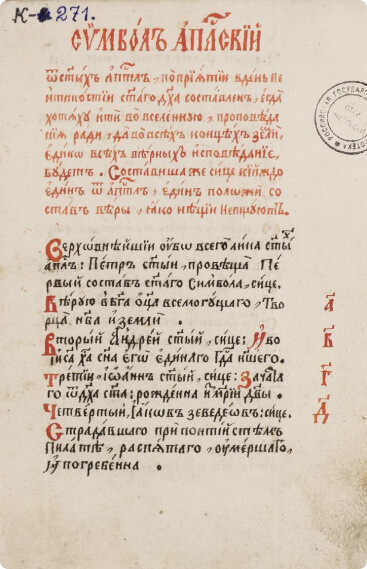 К-271.
СѴМВОЛЪ А҆Пⷭ҇ЛСКІЙ
Ѿ ст҃ыхъ а҆пⷭ҇тлъ, по прїѧтїи в̾ день пе
нтикостїи ст҃аго дх҃а составленъ, є҆гда
хотѧхꙋ и҆ти во вселеннꙋю, проповѣда
нїѧ ради, да во всѣхъ концѣхъ земли,
є҆дино всѣхъ вѣрныхъ и҆сповѣданїе,
бꙋдетъ. Составиша же сице кїйждо
є҆динъ ѿ а҆пⷭ҇тлъ, є҆динъ положи со
ставъ вѣры, ꙗ҆ко нѣцїи непщꙋютъ.
Верховнѣйшїи ᲂу҆бо всего лика ст҃ыхъ
а҆пⷭ҇лъ: Петръ ст҃ыи, провѣща Пе
рвый составъ ст҃аго Сѵмвола, сице.
Вѣрꙋю в̾ бг҃а ѻ҆ц҃а всемогꙋщаго, Тво
рца нб҃а и҆ земли.
Вторый А҆ндрей ст҃ый, сице: И҆ во
і҆с҃а хрⷭ҇та сн҃а є҆гѡ̀ є҆динаго гдⷭ҇а нш҃его.
Третїи, і҆ѡаннъ ст҃ый, сице: Зачата
го ѿ дх҃а ст҃а: рожденна и҆ мр҃їи дв҃ы.
Четвертый, І҆аковъ зеведеѡвъ: сице.
Страдавшаго при понтїйстѣмъ
Пилатѣ, распѧтаго, ᲂу҆мершаго,
и҆ погребенна.
а҃
в҃
г҃
д҃